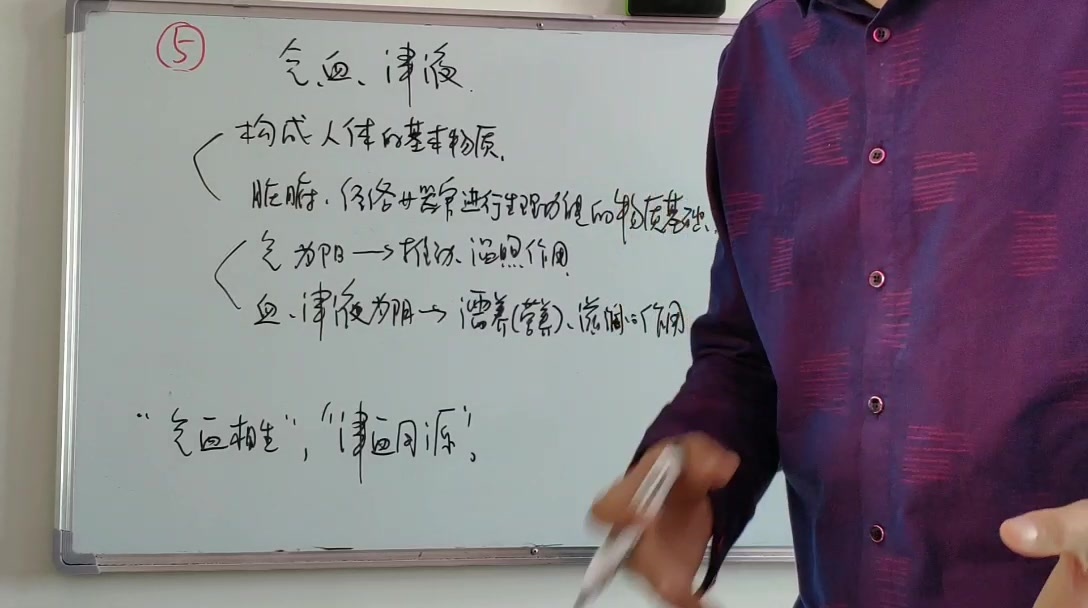 ⑤
气、血、津液.
构成人体的基本物质.
脏腑、经络廿器官进行生理功能的物质基础.
气为阳→推动、温照作用
血、津液为阴→濡养(营养)、滋润作用
“气血相生”,“津血同源”.